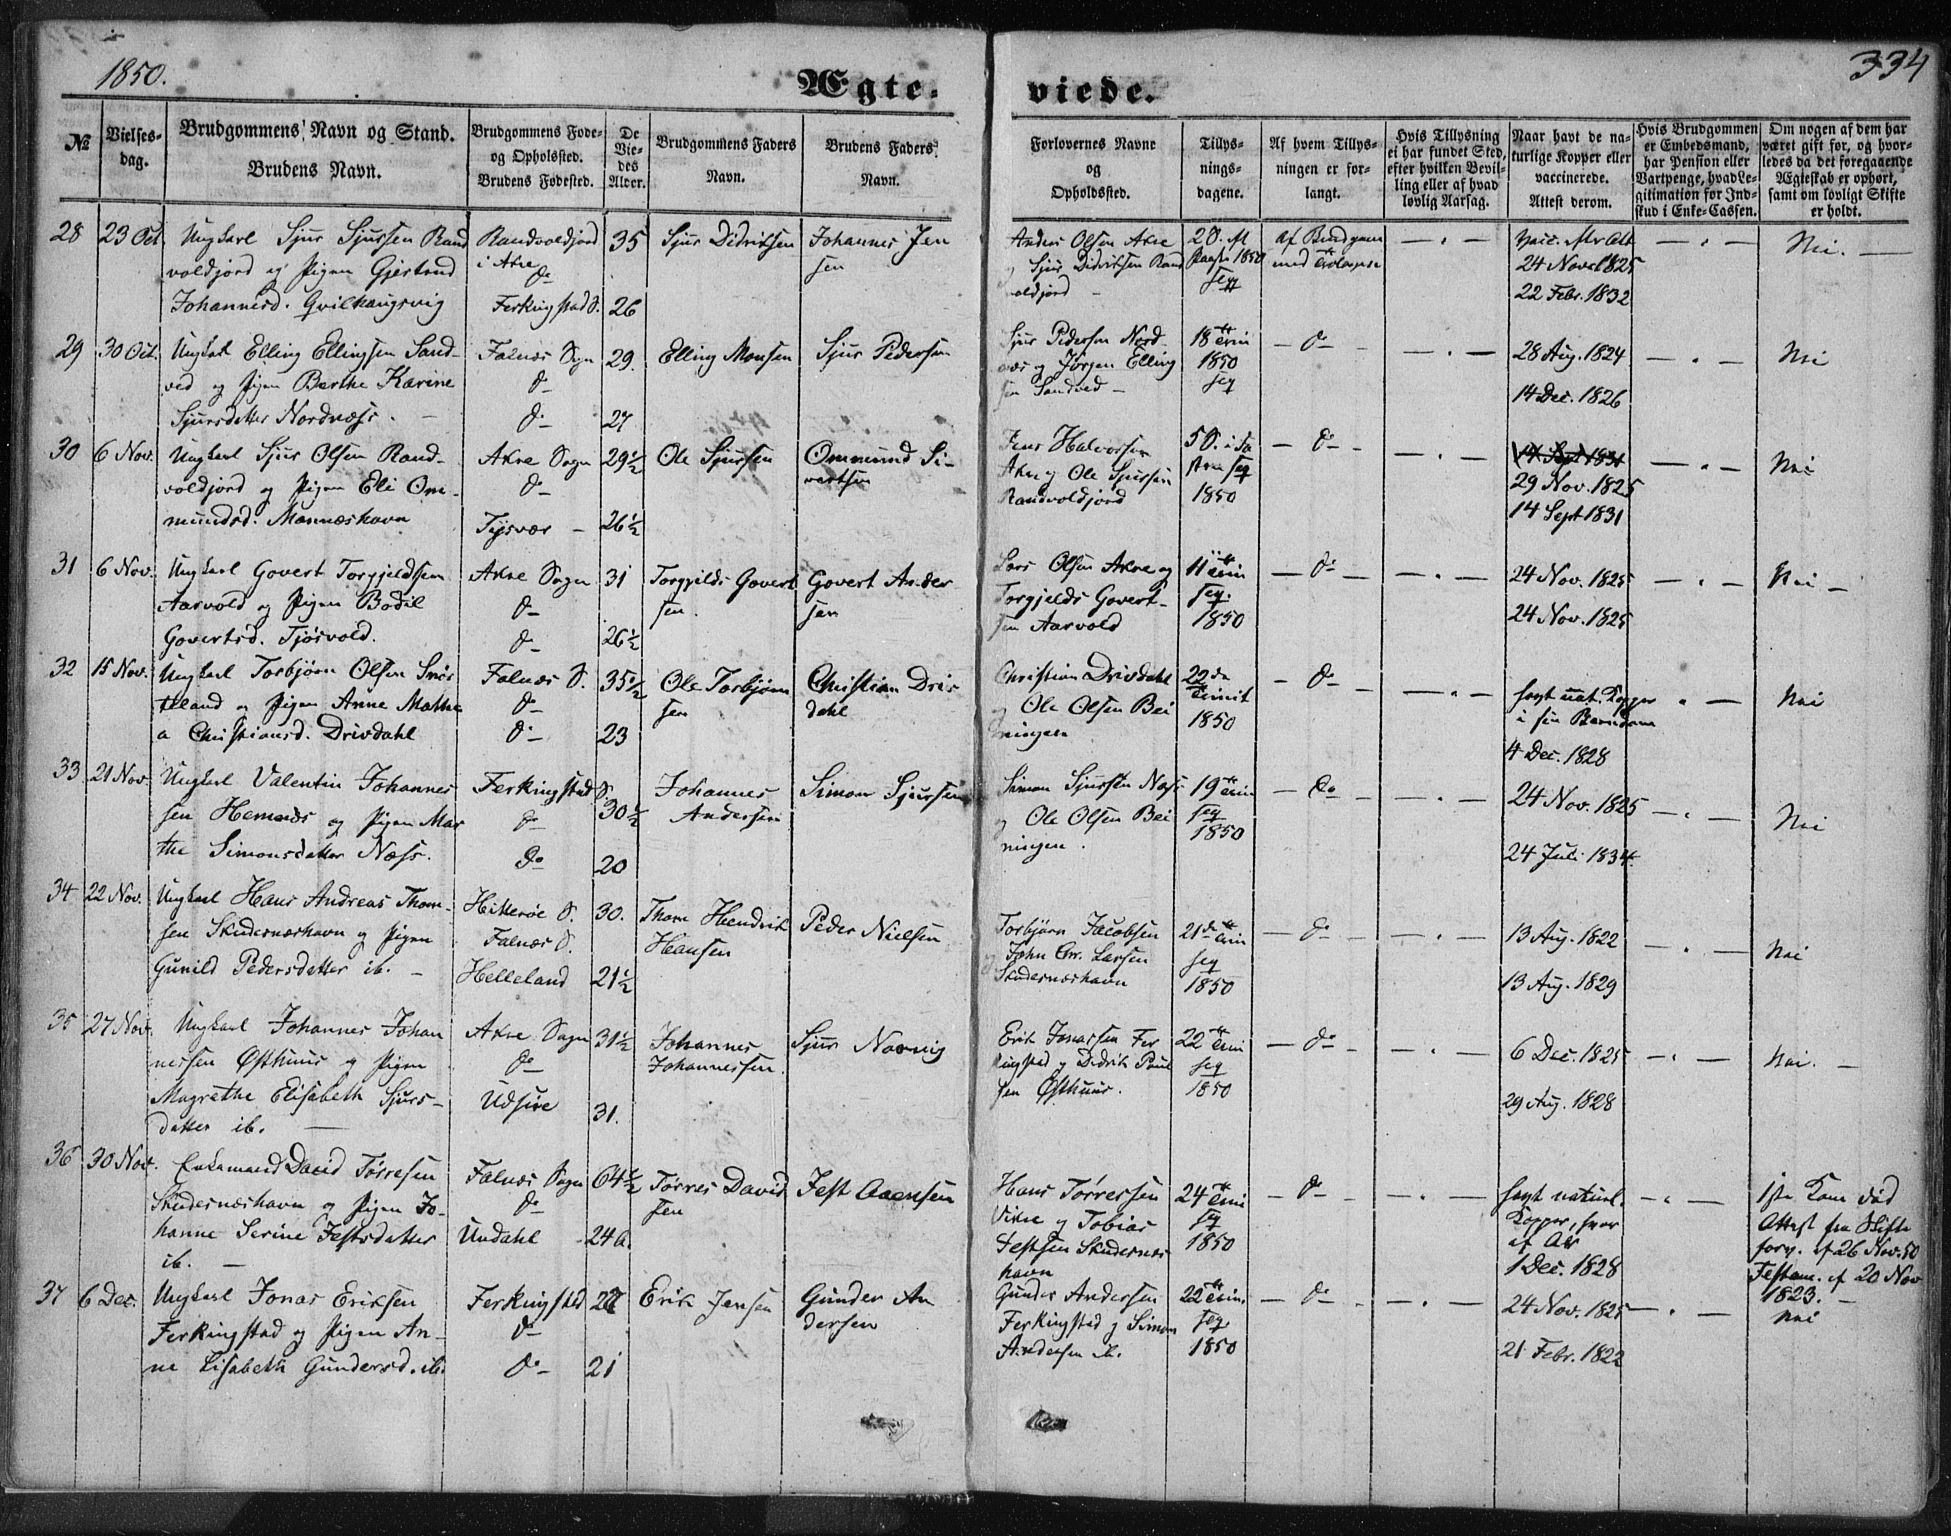 1850.
334
Ægte- viede.
№
Vielses-
dag.
Brudgommens Navn og Stand.
Brudens Navn.
Brudgommens Føde-
og Opholdssted.
Brudens Fødested.
De
Vie-
des
Alder.
Brudgommens Faders
Navn.
Brudens Faders
Navn.
Forlovernes Navne
og
Opholdssted.
Tillys-
nings-
dagene.
Af hvem Tillys-
ningen er for-
langt.
Hvis Tillysning
ei har fundet Sted,
efter hvilken Bevil-
ling eller af hvad
lovlig Aarsag.
Naar havt de na-
turlige Kopper eller
vaccinerede.
Attest derom.
Hvis Brudgommen
er Embedsmand,
har Pension eller
Vartpenge, hvad Le-
gitimation for Ind-
skud i Enke-Cassen.
Om nogen af dem har
været gift før, og hvor-
ledes da det foregaaende
Ægteskab er ophørt,
samt om lovligt Skifte
er holdt.
28 23 Oct. Ungkarl Sjur Sjursen Rand
voldjord og Pigen Gjertrud
Johannesd. Qvilhaugsvig
Randvoldjord
i Akre
do
Ferkingstad S.
35
26
Sjur Didriksen
Johannes Jen
sen
Anders Olsen Akre
og Sjur Didriksen Rand
voldjord
20. p.
1850
seqq
Af Brudgom
med Forlovere
24 Nov. 1825
22 Febr. 1832
Nei.
29 30 Oct. Ungkarl Elling Ellingsen Sand-
ved og Pigen Berthe Karine
Sjursdatter Nordnæss.
Falnæs Sogn
do
do
29.
27
Elling Monsen
Sjur Pedersen
Sjur Pedersen Nord-
næs og Jørgen Elling
sen Sandved
18 Trin
1850
seq
do
28 Aug. 1824
14 Dec. 1826
Nei
30 6 Nov. Ungkarl Sjur Olsen Rand-
voldjord og Pigen Eli Om-
mundsd. Mannæshavn
Akre Sogn
do
Tysvær
29½
26½
Ole Sjursen
Ommund Si-
vertsen
Jens Halvorsen
Akre og Ole Sjursen
Randvoldjord
5 S.
seq
1850
do
14 Sept 1831
29 Nov. 1825
14 Sept 1831
Nei
31 6 Nov. Ungkarl Govert Torgjeldsen
Aarvold og Pigen Bodil
Govertsd. Tjøsvold.
Akre Sogn
do
do
31
26½
Torgjelds Govert
sen.
Govert Ander
sen
Lars Olsen Akre og
Torgjelds Govert-
sen Aarvold
11 Trin
seq.
1850
do
24 Nov. 1825
24 Nov. 1825
Nei
32 15 Nov. Ungkarl Torbjørn Olsen Snør
teland og Pigen Anne Mathe
a Christiansd. Drivdahl
Falnæs S.
do
do
35½
23
Ole Torbjørn
sen
Christian Driv
dahl
Christian Drivdahl
og Ole Olsen Bei
ningen
22 de
Trinit
1850
do
havt nat. Kopper
i sin Barndom
4 Dec. 1828
Nei
33 21 Nov. Ungkarl Valentin Johannes
sen Hemnæs og Pigen Mar
the Simonsdatter Næss.
Ferkingstad S.
do
do
30½
20
Johannes
Andersen
Simon Sjursen
Simon Sjursen Næss
og Ole Olsen Bei
ningen.
19 Trin
seq
1850
do
24 Nov. 1825
24 Juli 1834.
Nei
34 22 Nov. Ungkarl Hans Andreas Thom-
sen Skudesnæshavn og Pigen
Gunild Pedersdatter ib.
Hitterøe S.
Falnæs S.
Helleland
30.
21½
Thom Hendrik
Hansen
Peder Nielsen
Torbjørn Jacobsen
og John Chr. Larsen
Skudesnæshavn
21de Trin
seq
1850
do
13 Aug. 1822
13 Aug. 1829
Nei
35 27 Nov. Ungkarl Johannes Johan
nessen Østhuus og Pigen
Magrethe Elisabeth Sjurs-
datter ib.
Akre Sogn
do
Udsire
31½
31.
Johannes
Johannessen.
Sjur Norvig
Erik Jonassen Fer
kingstad og Didrik Poul
sen Østhuus.
22 Trin
seq
1850
do
6 Dec. 1825
29 Aug. 1828
Nei.
36 30 Nov. Enkemand David Tørresen
Skudesnæshavn og Pigen Jo-
hanne Serine Jestsdatter
ib.
Falnæs Sogn
do
Undahl
64½
24
Tørres David
sen
Jest Aaensen
Hans Tørresen
Vikre og Tobias
Jestsen Skudesnæs
havn
24 Trin
seq
1850
do
havt naturl.
Kopper,
1 Dec. 1828
1ste Kone død
Attest fra Skifte
forv. af 26 Nov. 50
Testam. af 20 Nov
1823.
37 6 Dec. Ungkarl Jonas Eriksen
Ferkingstad og Pigen An-
ne Lisabeth Gundersd. ib.
Ferkingstad
do
do
27
21
Erik Jensen
Gunder An
dersen
Gunder Andersen
Ferkingstad og Simon
Andersen ib.
22 Trin.
seq.
1850
do
24 Nov. 1825
21 Febr. 1822
Nei